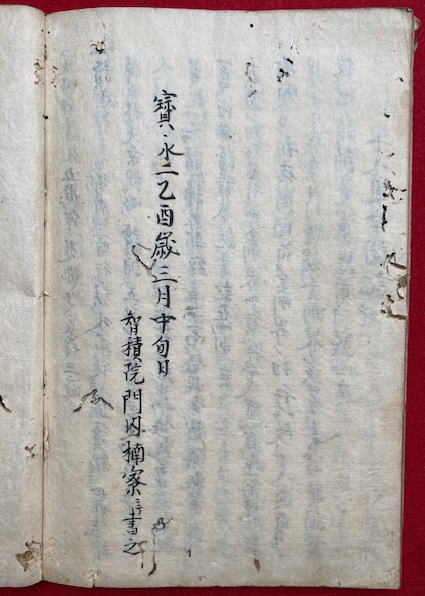 寳永二乙酉歳三月中旬日
智積院門内楠寮ニテ書之